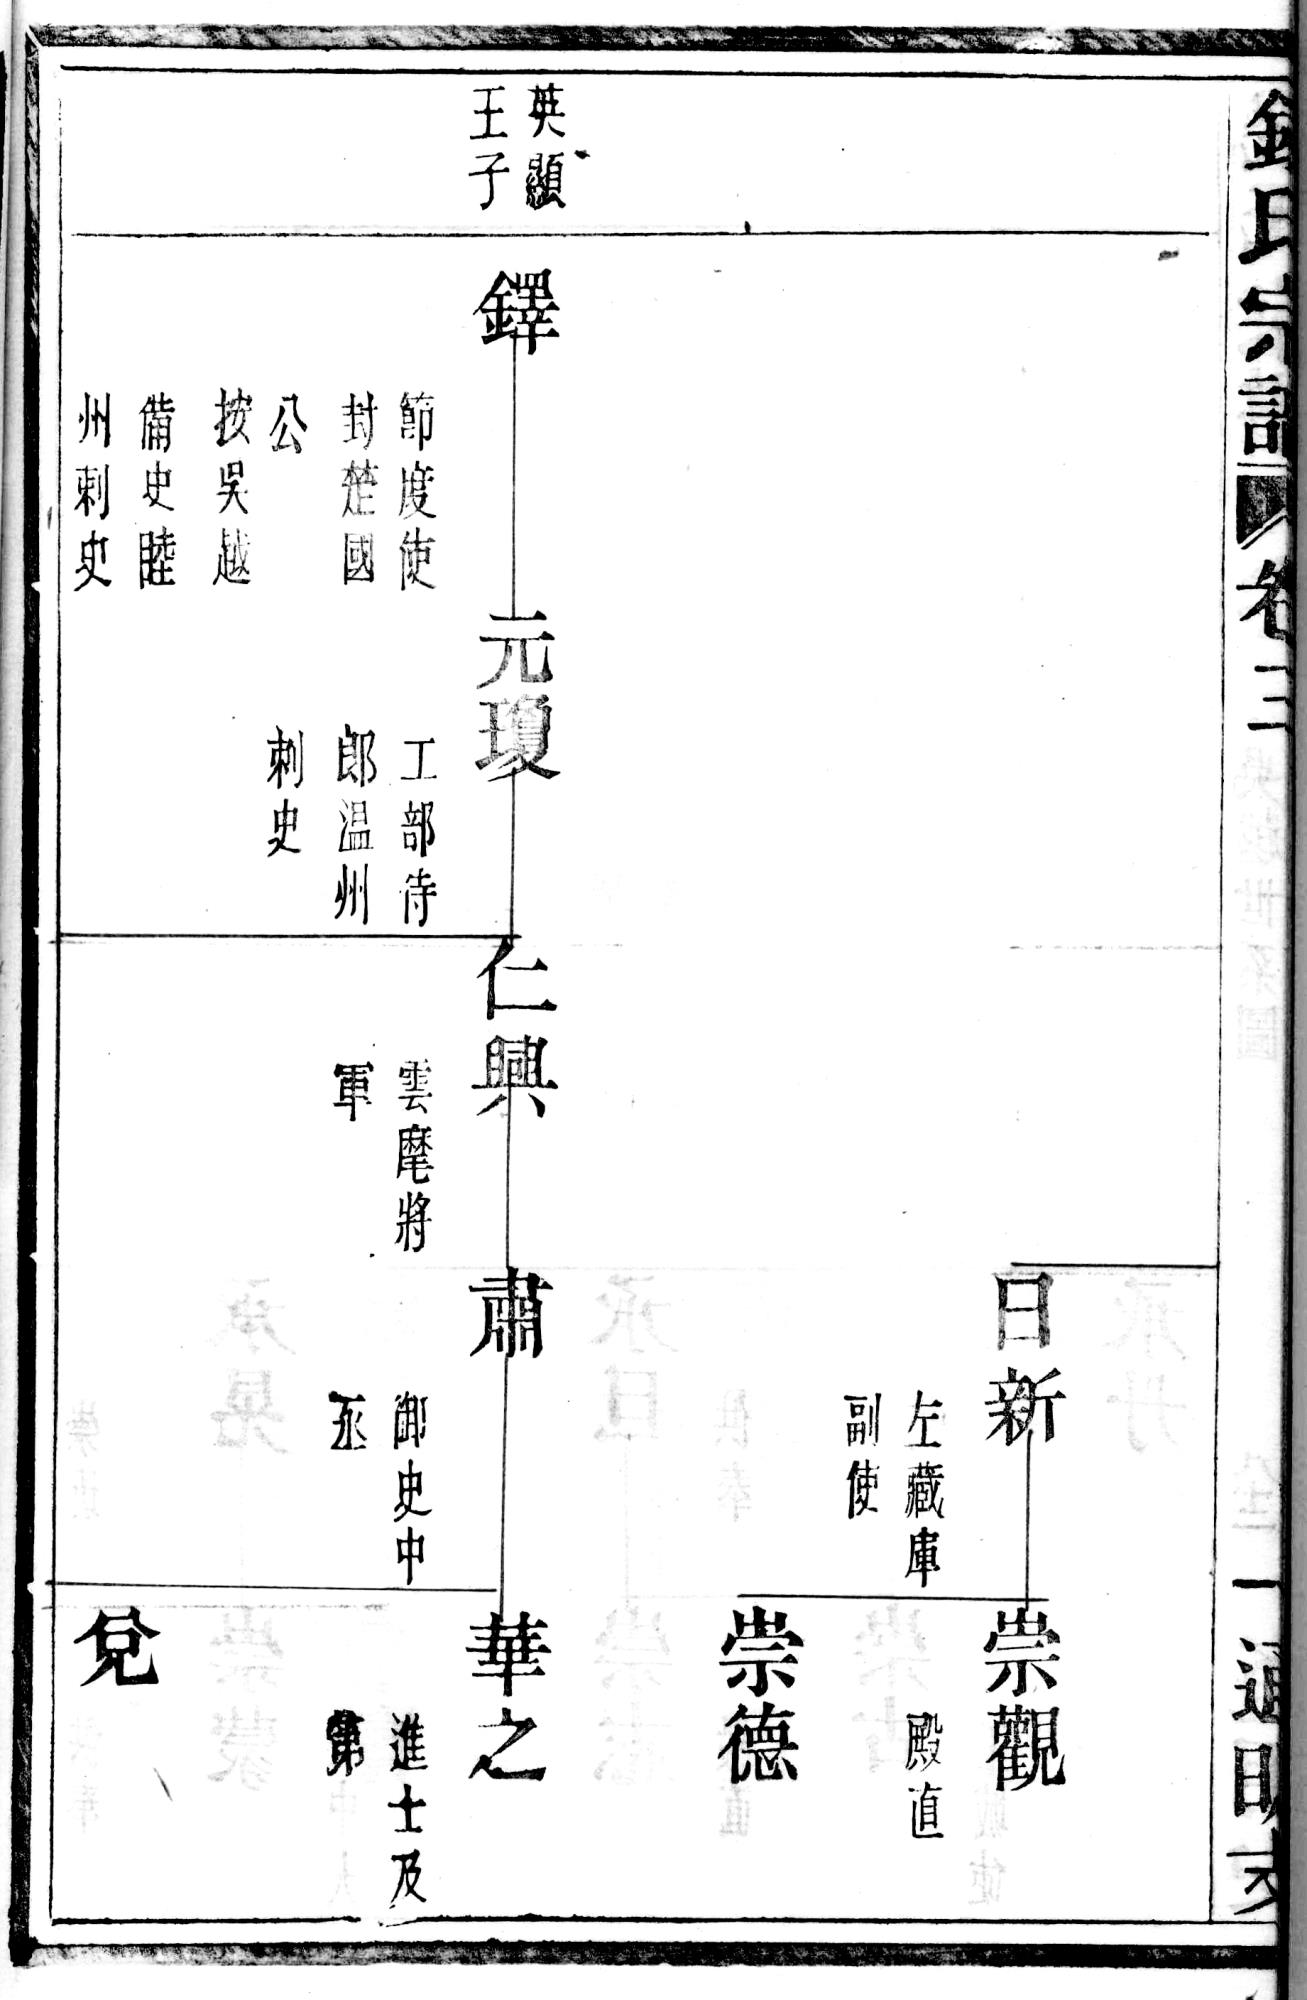 錢氏宗譜
卷三
一
通明支
英顯
王子
鐸
節度使
封楚國
公
按吳越
備史睦
州刺史
元瓊
工部待
郎温州
刺史
仁興
雲麾將
軍
日新
左藏庫
副使
肅
御史中
丞
崇觀
殿直
崇德
華之
進士及
第
兌